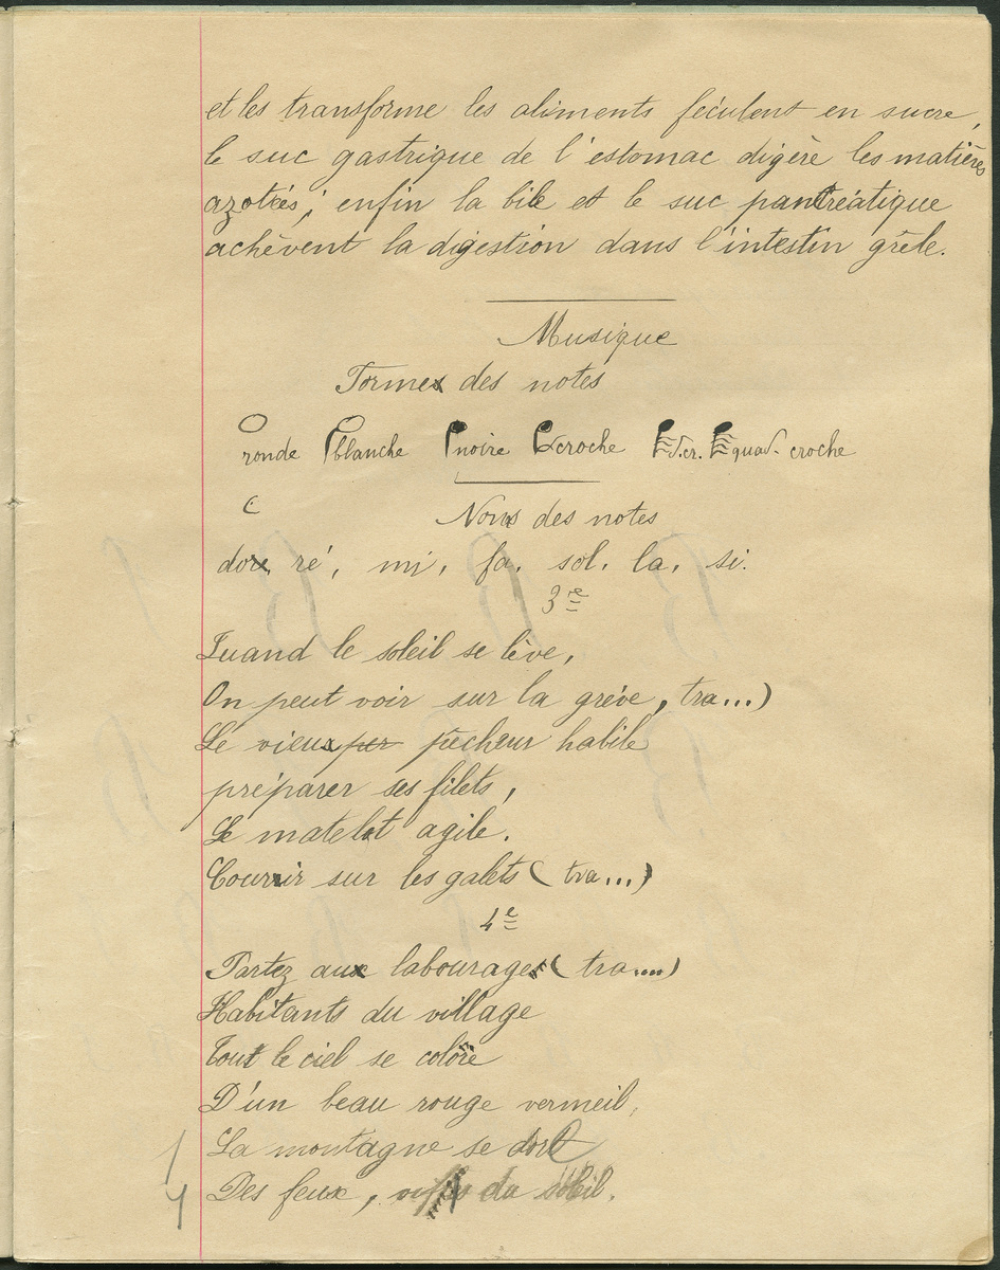 et les transforme les aliments féculent en sucre,
le suc gastrique de l'estomac digère les matières
azotées; enfin la bile et le suc pancréatique
achèvent la digestion dans l'intestin grêle.
Musique
Formes des notes
ronde blanche noire croche d.cr. quad. croche
Noms des notes
do, ré, mi, fa, sol, la, si.
3e
Quand le soleil se lève,
On peut voir sur la grève, tra...)
Le vieux per pêcheur habile
préparer ses filets,
Le matelot agile.
Courrir sur les galets (tra...)
4e
Partez aux labourages (tra....)
Habitants du village
Tout le ciel se colore
D'un beau rouge vermeil,
La montagne se dore
Des feux, du soleil.